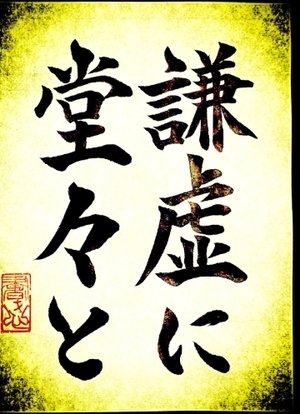 謙虚に
堂々と